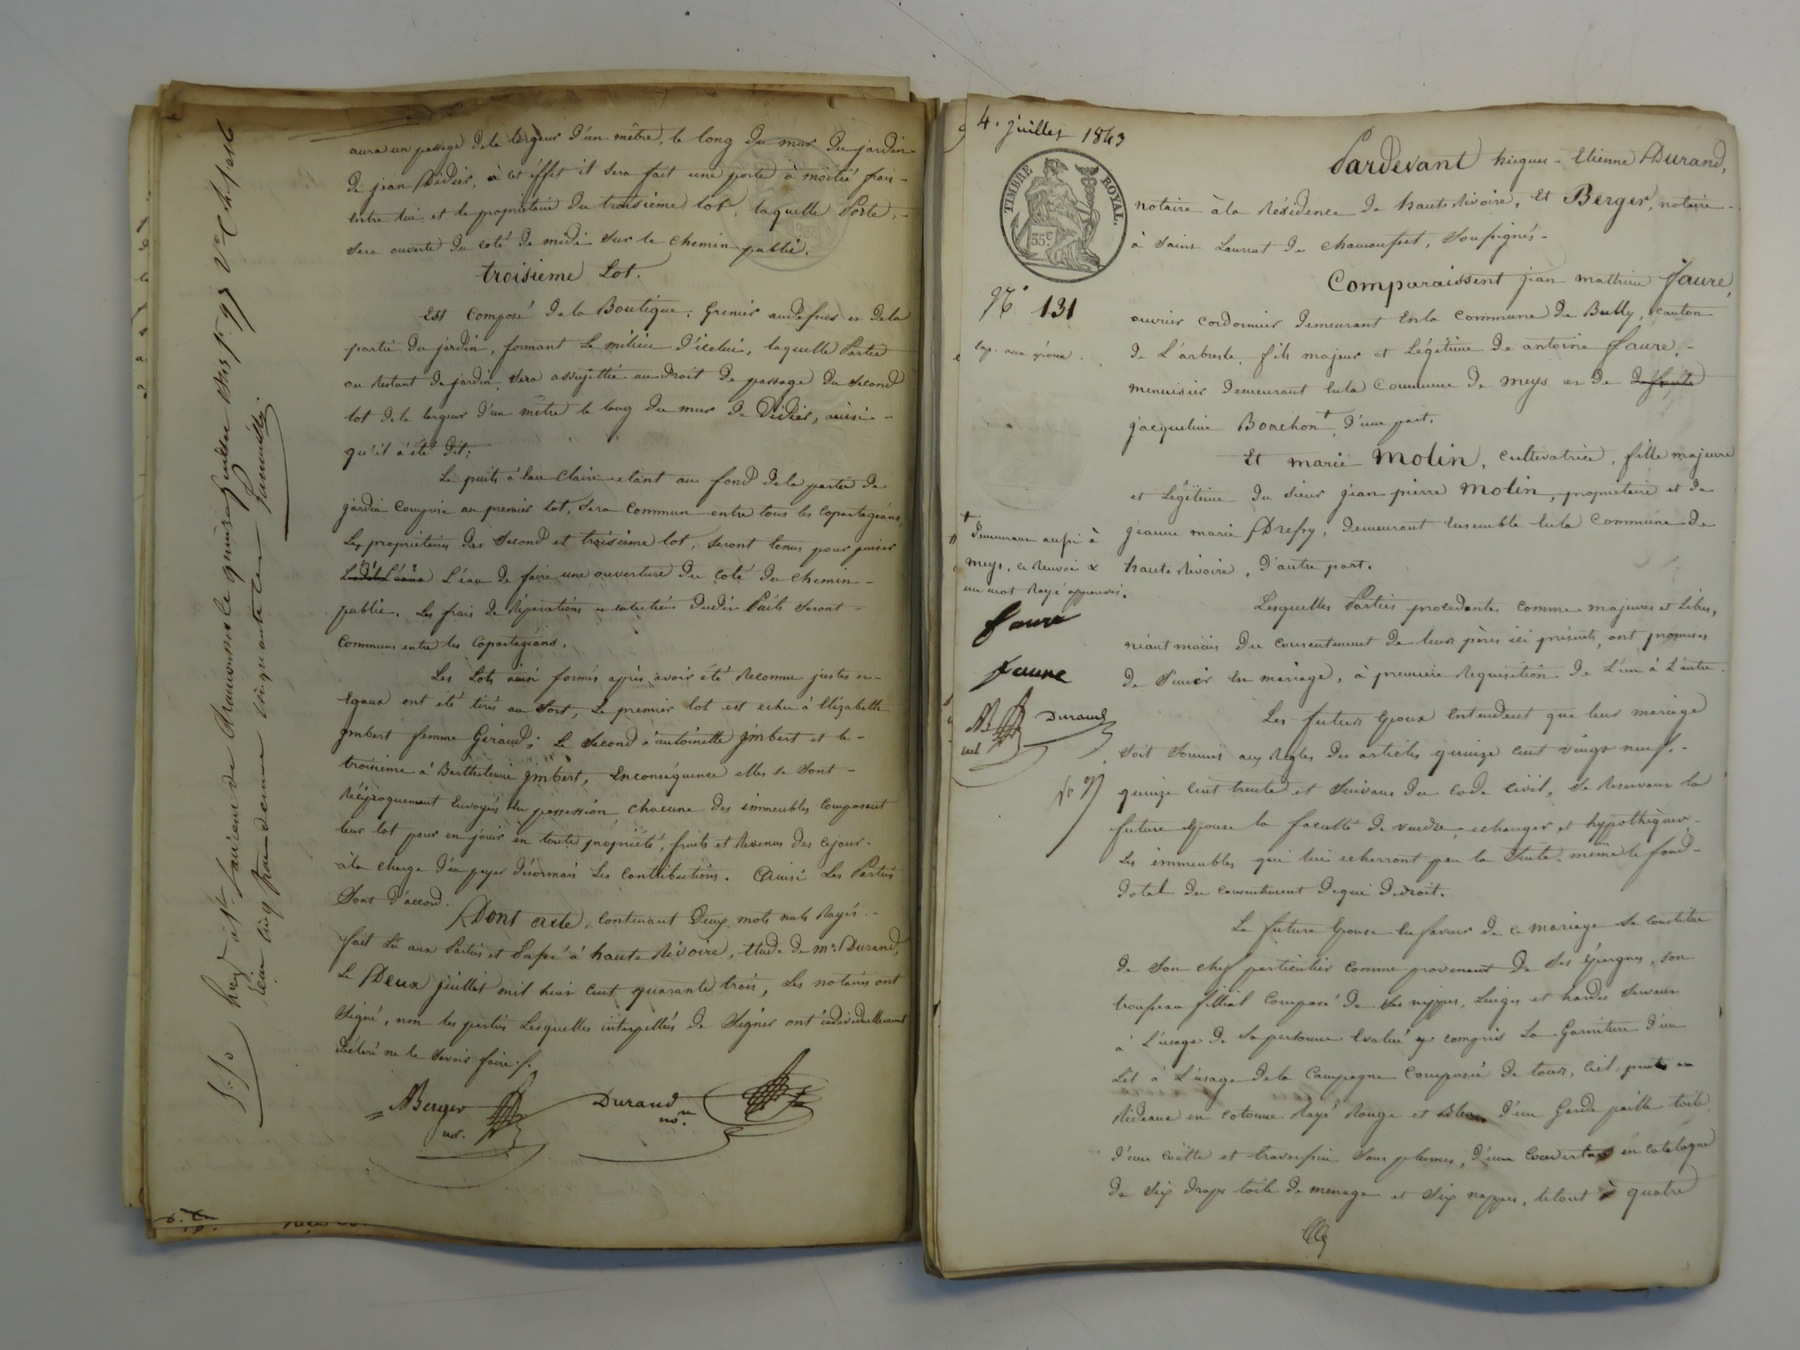 aura un passage de la largeur d'un mètre, le long du mur du jardin
de jean Didier, à cet éffet il sera fait une porte à moitié frais
entre lui et le propriétaire du troisième lot, laquelle Porte,
sera ouverte du coté de midi sur le chemin public.
troisieme Lot.
Est Composé de la Boutique, Grenier au dessus et de la
partie du jardin, formant le milieu d'icelui, laquelle Partie
ou restant de jardin, sera assujettie au droit de passage du second
lot de la largeur d'un mètre le long du mur de Didier, ainsi
qu'il a été dit;
Le puits à eau claire étant au fond de la partie de
jardin comprise au premier lot, sera commun entre tous les copartageans,
Les propriétaires des second et troisième lot, seront tenus pour puiser
L'eau de faire une ouverture du coté du chemin
public. Les frais de réparations et entretiens dudit Puits seront
communs entre les copartageans.
Les Lots ainsi formés après avoir été reconnu justes et
égaux ont été tirés au sort, Le premier lot est echu à Elizabeth
jmbert femme Giraud; Le second à antoinette jmbert et le
troisième à Barthelemie jmbert, Enconséquence elles se sont
réciproquement envoyés en possession, chacune des immeubles composant
leur lot pour en jouir en toute propriété, fruits et revenus dès cejour
à la charge d'en payer désormais les contributions. Ainsi les Parties
sont d'accord.
Dont acte, contenant Deux mots nuls rayés
fait Lu aux Parties et Passé à haute Rivoire, Etude de Me Durand,
Le Deux juillet mil huit cent quarante trois, Les notaires ont
signé, non les parties Lesquelles interpellées de signer ont individuellement
déclaré ne le savoir faire ./.
ABerger
not.
Durand
nore
4. juillet 1843
TIMBRE ROYAL.
35c
No 131
Pardevant hugues-Etienne Durand,
notaire à la résidence de haute Rivoire, Et Berger, notaire
à Saint Laurent de chamousset, soussignés
Comparaissent jean mathieu Faure,
ouvrier cordonnier demeurant en la commune de Bully, canton
de L'arbresle, fils majeur et Légitime de antoine Faure,
menuisier demeurant en la Commune de meys et de
jacqueline Boachon +, d'une part.
Et marie Molin, cultivatrice, fille majeure
et Légitime du sieur jean pierre Molin, propriétaire et de
jeanne marie, demeurant ensemble en la commune de
haute Rivoire, d'autre part.
+ demeurant aussi à
meys, ce renvoi &
un mot rayé approuvés.
faure
faure
AB
not
Durand
Lesquelles Parties procedantes comme majeures et libres,
néantmoins du consentement de leurs pères ici présents, ont promises
de s'unir en mariage, à première requisition de L'un à L'autre.
Les futurs époux entendent que leur mariage
soit soumis aux règles des articles quinze cent vingt neuf,
quinze cent trente et suivans du code civil, se réservant la
future épouse la faculté de vendre, echanger et hypothèquer
Les immeubles qui lui echerront par la suite, même le fond
dotal du consentement de qui de droit.
La future épouse en faveur de ce mariage se constitue
de son chef particulier comme provenant de ses épargnes, son
trousseau filliel composé de ses nippes, Linges et hardes servant
à L'usage de sa personne Evalué y compris La Garniture d'un
Lit à L'usage de la Campagne composée de tour, ciel, pente et
rideaux en cotonne rayé rouge et bleu, d'un Garde paille toile
d'une coëtte et traversin sans plumes, d'une couverture en catalogne
de six draps toile de menage et six nappes, le tout à quatre